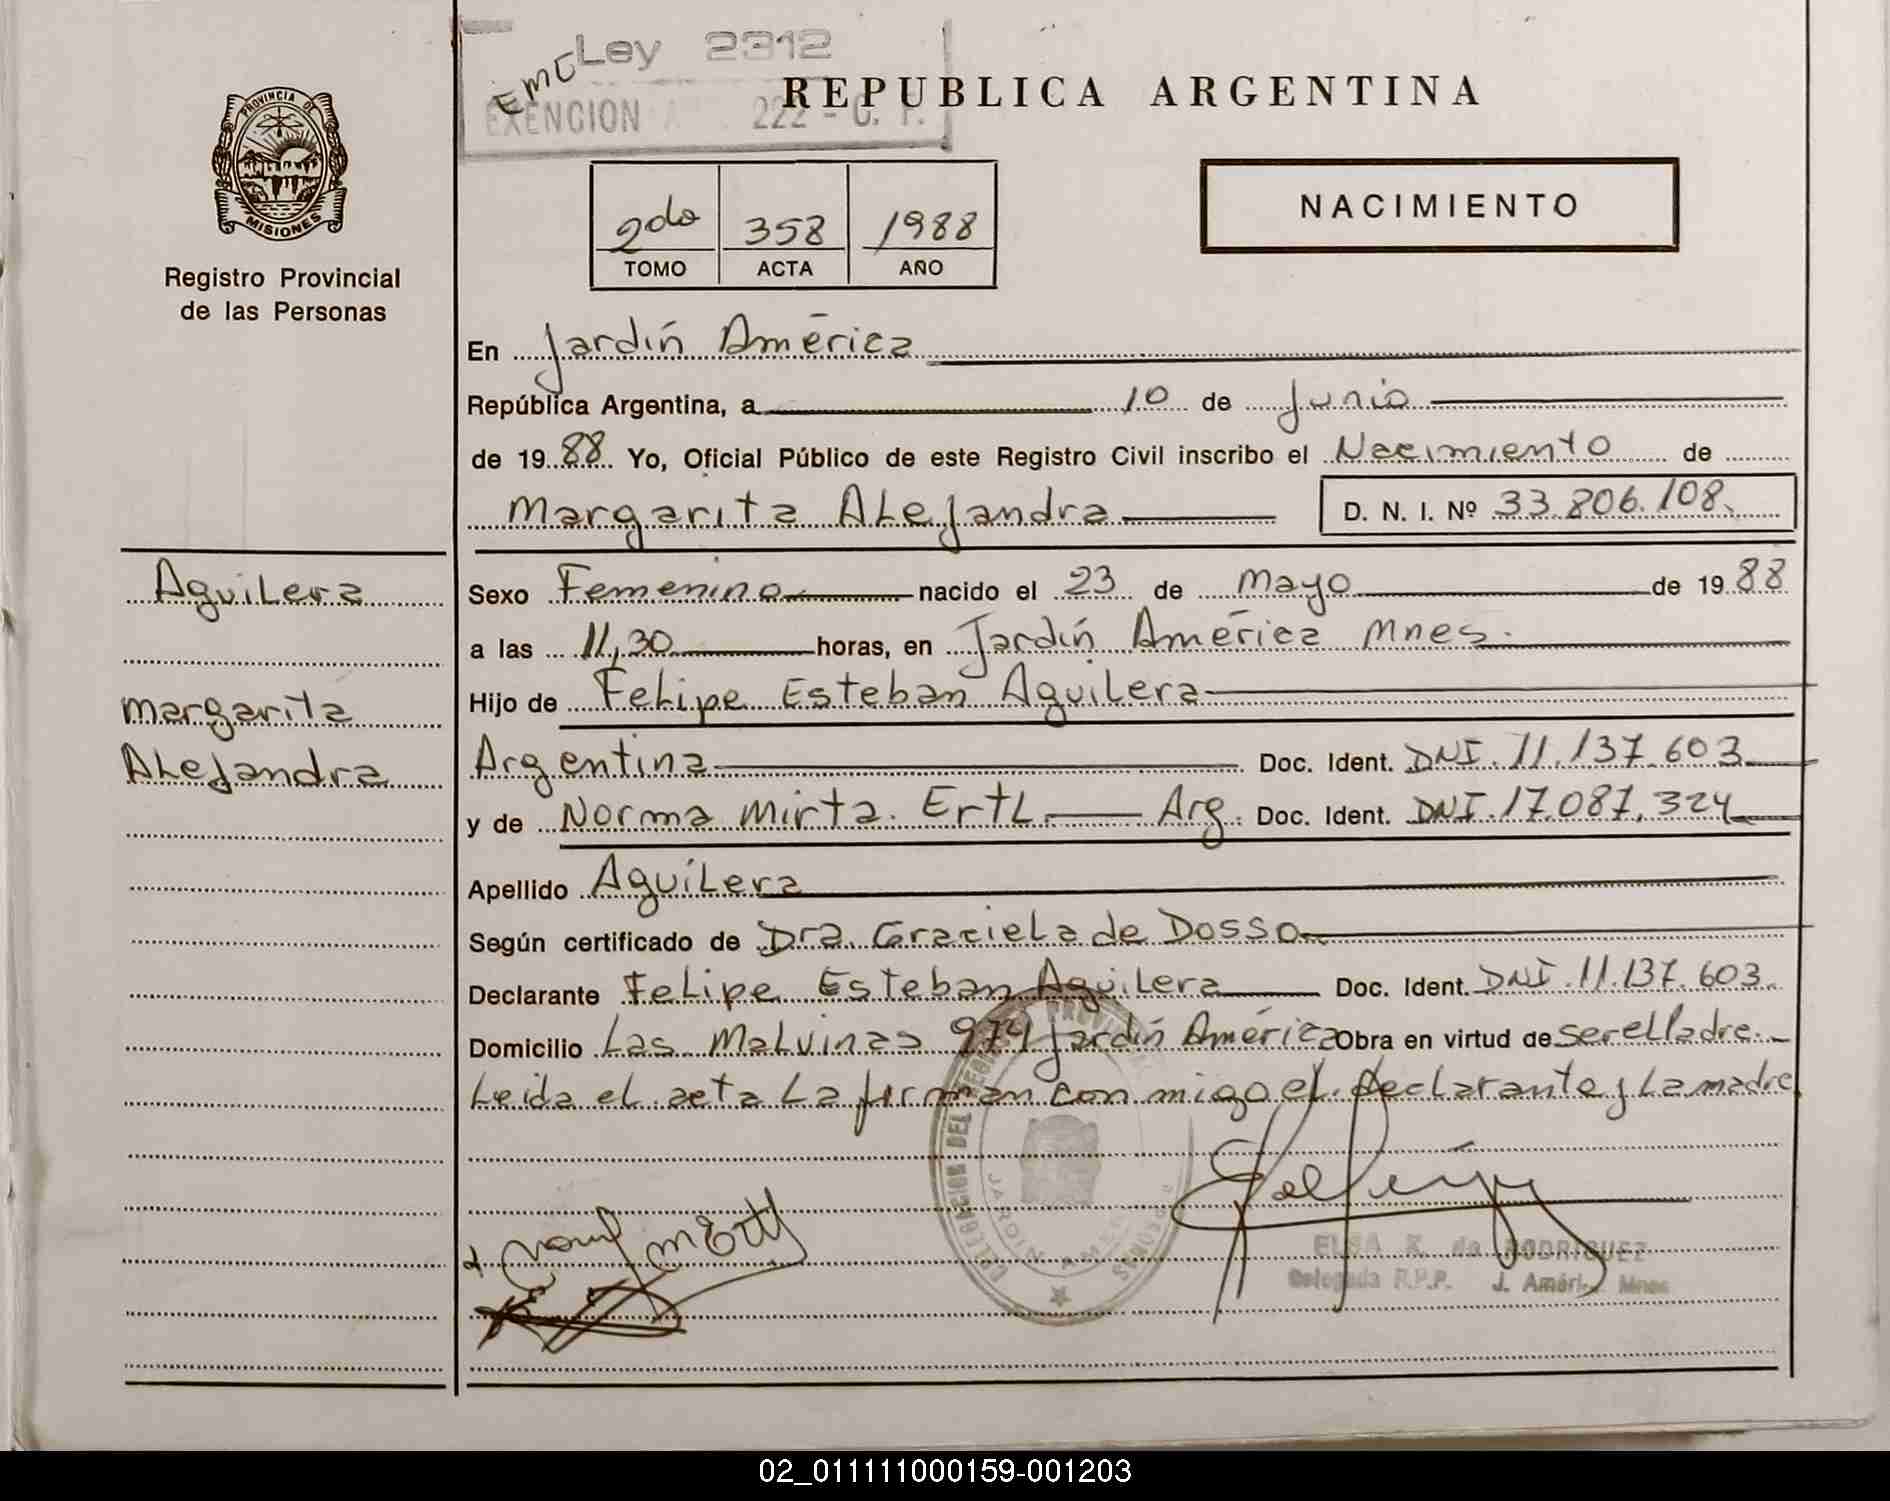 Ley 2312
EMC
EXENCION A 222 - C. F.
REPUBLICA ARGENTINA
PROVINCIA DE
MISIONES
Registro Provincial
de las Personas
2do 358 1988
TOMO ACTA AÑO
NACIMIENTO
En Jardín América
República Argentina, a 10 de Junio
de 1988 Yo, Oficial Público de este Registro Civil inscribo el Nacimiento de
Margarita Alejandra D. N. I. Nº 33.806.108.
Aguilera
Margarita
Alejandra
Sexo Femenino nacido el 23 de Mayo de 1988
a las 11,30 horas, en Jardín América Mnes.
Hijo de Felipe Esteban Aguilera
Argentina Doc. Ident. DNI. 11.137.603
y de Norma Mirta. Ertl. Arg. Doc. Ident. DNI.17.087.324
Apellido Aguilera
Según certificado de Dra. Graciela de Dosso
Declarante Felipe Esteban Aguilera Doc. Ident. DNI.11.137.603.
Domicilio Las Malvinas 974 Jardín América Obra en virtud de ser el Padre.
Leida el acta La firman con migo el declarante y La madre
DELEGACION DEL
JARDIN AMERICA
ELSA K. de RODRIGUEZ
Delegada R.P.P. J. Améri. Mnes
02_011111000159-001203